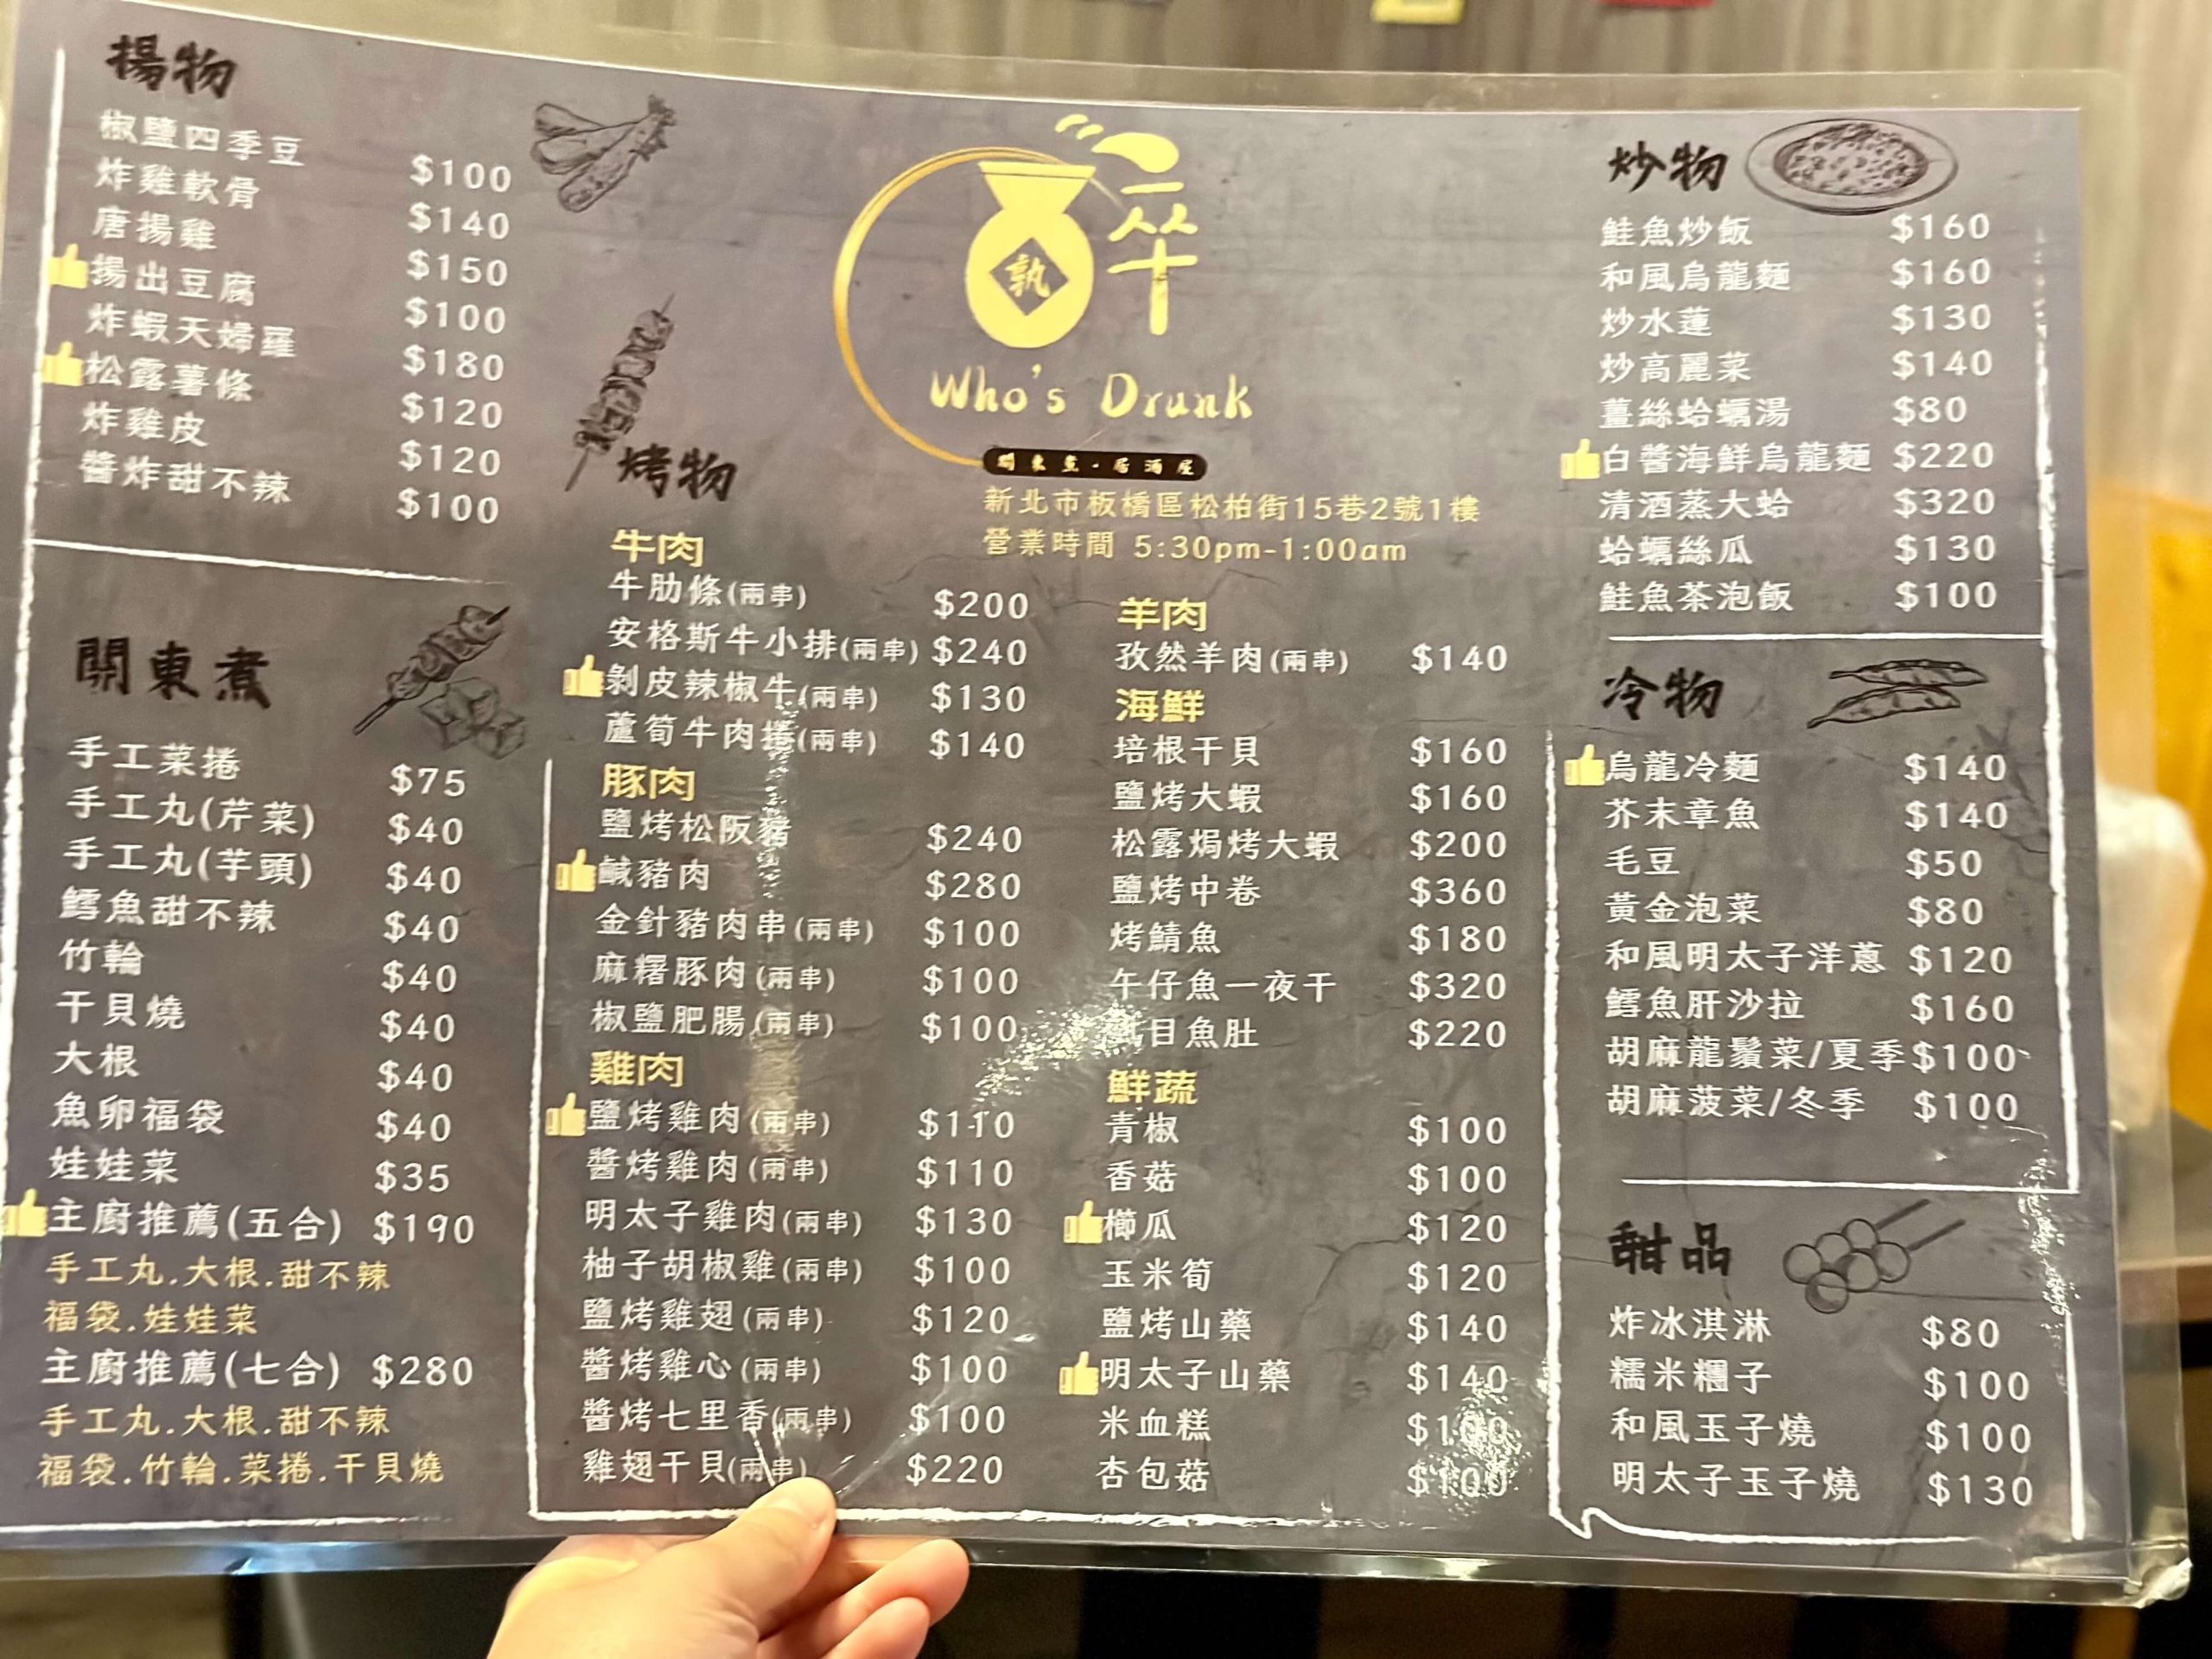 揚物
椒鹽四季豆 $100
炸雞軟骨 $140
唐揚雞 $150
揚出豆腐 $100
炸蝦天婦羅 $180
松露薯條 $120
炸雞皮 $120
醬炸甜不辣 $100
關東煮
手工菜捲 $75
手工丸(芹菜) $40
手工丸(芋頭) $40
鱈魚甜不辣 $40
竹輪 $40
干貝燒 $40
大根 $40
魚卵福袋 $40
娃娃菜 $35
主廚推薦(五合) $190
手工丸.大根.甜不辣
福袋.娃娃菜
主廚推薦(七合) $280
手工丸.大根.甜不辣
福袋.竹輪.菜捲.干貝燒
孰
酉卒
Who's Drunk
關東煮·居酒屋
新北市板橋區松柏街15巷2號1樓
營業時間 5:30pm-1:00am
烤物
牛肉
牛肋條(兩串) $200
安格斯牛小排(兩串) $240
剝皮辣椒牛(兩串) $130
蘆筍牛肉捲(兩串) $140
豚肉
鹽烤松阪豬 $240
鹹豬肉 $280
金針豬肉串(兩串) $100
麻糬豚肉(兩串) $100
椒鹽肥腸(兩串) $100
雞肉
鹽烤雞肉(兩串) $110
醬烤雞肉(兩串) $110
明太子雞肉(兩串) $130
柚子胡椒雞(兩串) $100
鹽烤雞翅(兩串) $120
醬烤雞心(兩串) $100
醬烤七里香(兩串) $100
雞翅干貝(兩串) $220
羊肉
孜然羊肉(兩串) $140
海鮮
培根干貝 $160
鹽烤大蝦 $160
松露焗烤大蝦 $200
鹽烤中卷 $360
烤鯖魚 $180
午仔魚一夜干 $320
虱目魚肚 $220
鮮蔬
青椒 $100
香菇 $100
櫛瓜 $120
玉米筍 $120
鹽烤山藥 $140
明太子山藥 $140
米血糕 $100
杏包菇 $100
炒物
鮭魚炒飯 $160
和風烏龍麵 $160
炒水蓮 $130
炒高麗菜 $140
薑絲蛤蠣湯 $80
白醬海鮮烏龍麵 $220
清酒蒸大蛤 $320
蛤蠣絲瓜 $130
鮭魚茶泡飯 $100
冷物
烏龍冷麵 $140
芥末章魚 $140
毛豆 $50
黃金泡菜 $80
和風明太子洋蔥 $120
鱈魚肝沙拉 $160
胡麻龍鬚菜/夏季 $100
胡麻菠菜/冬季 $100
甜品
炸冰淇淋 $80
糯米糰子 $100
和風玉子燒 $100
明太子玉子燒 $130